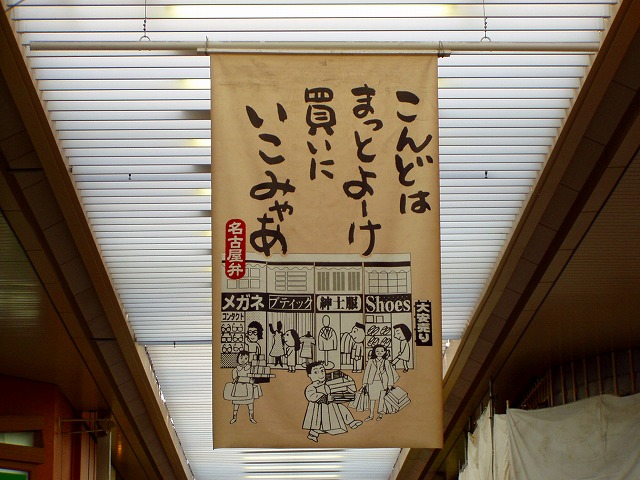 こんどは
まっとよーけ
買いに
いこみゃあ
名古屋弁
メガネ
コンタクト
ブティック
紳士服
Shoes
大安売り